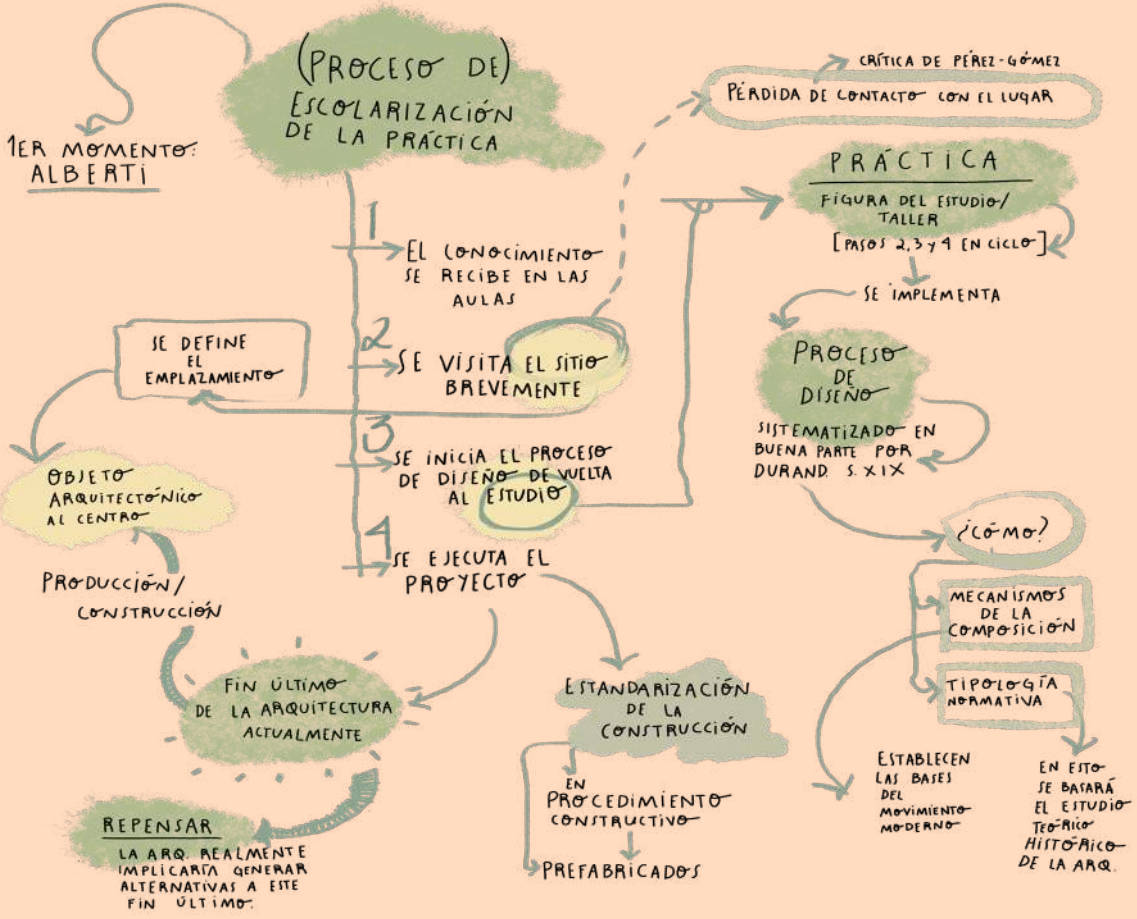 (PROCESO DE)
ESCOLARIZACIÓN
DE LA PRÁCTICA
1ER MOMENTO:
ALBERTI
1
EL CONOCIMIENTO
SE RECIBE EN LAS
AULAS
2
SE VISITA EL SITIO
BREVEMENTE
SE DEFINE
EL
EMPLAZAMIENTO
3
SE INICIA EL PROCESO
DE DISEÑO DE VUELTA
AL ESTUDIO
4
SE EJECUTA EL
PROYECTO
OBJETO
ARQUITECTÓNICO
AL CENTRO
PRODUCCIÓN/
CONSTRUCCIÓN
FIN ÚLTIMO
DE LA ARQUITECTURA
ACTUALMENTE
REPENSAR
LA ARQ. REALMENTE
IMPLICARÍA GENERAR
ALTERNATIVAS A ESTE
FIN ÚLTIMO.
ESTANDARIZACIÓN
DE LA
CONSTRUCCIÓN
EN
PROCEDIMIENTO
CONSTRUCTIVO
PREFABRICADOS
CRÍTICA DE PÉREZ-GÓMEZ
PÉRDIDA DE CONTACTO CON EL LUGAR
PRÁCTICA
FIGURA DEL ESTUDIO/
TALLER
[PASOS 2,3 y 4 EN CICLO]
SE IMPLEMENTA
PROCESO
DE
DISEÑO
SISTEMATIZADO EN
BUENA PARTE POR
DURAND. S. XIX
¿CÓMO?
MECANISMOS
DE LA
COMPOSICIÓN
TIPOLOGÍA
NORMATIVA
ESTABLECEN
LAS BASES
DEL
MOVIMIENTO
MODERNO
EN ESTO
SE BASARÁ
EL ESTUDIO
TEÓRICO
HISTÓRICO
DE LA ARQ.